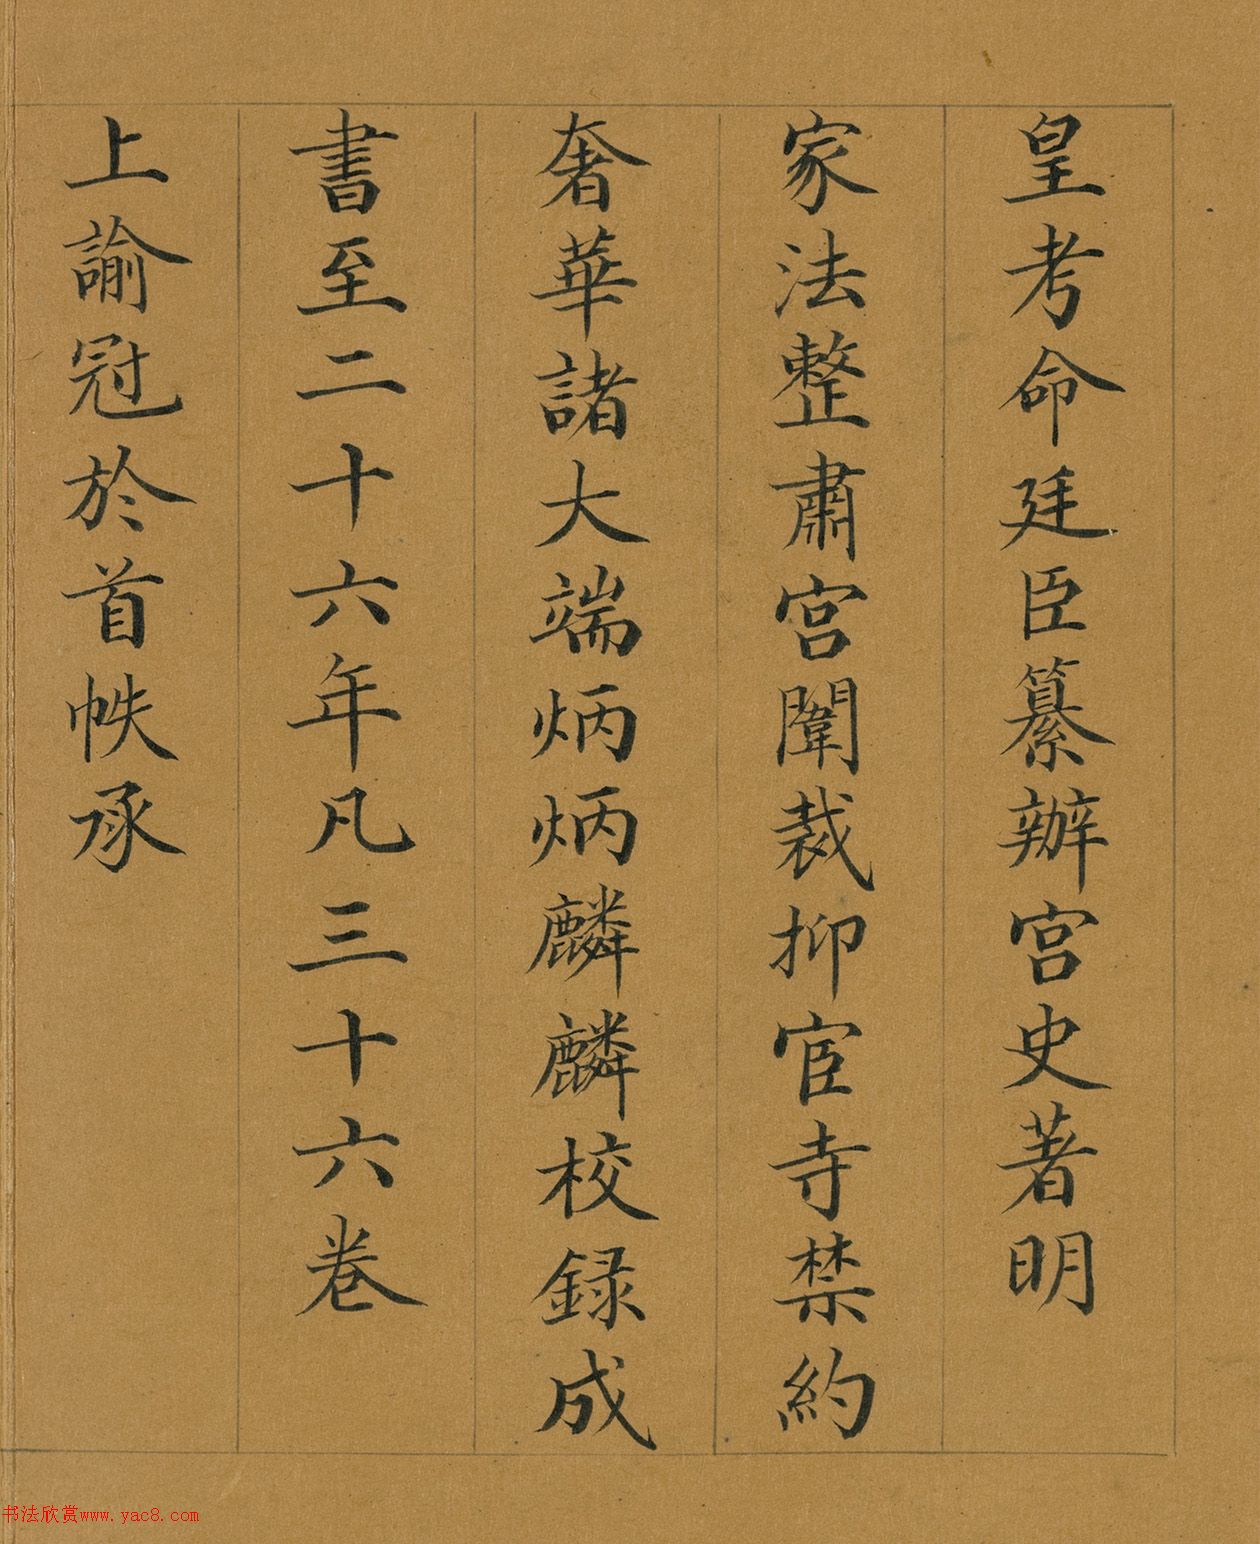 皇考命廷臣纂辦宮史著明
家法整肅宮闈裁抑宦寺禁約
奢華諸大端炳炳麟麟校録成
書至二十六年凡三十六卷
上諭冠於首帙承
书法欣赏www.yac8.com